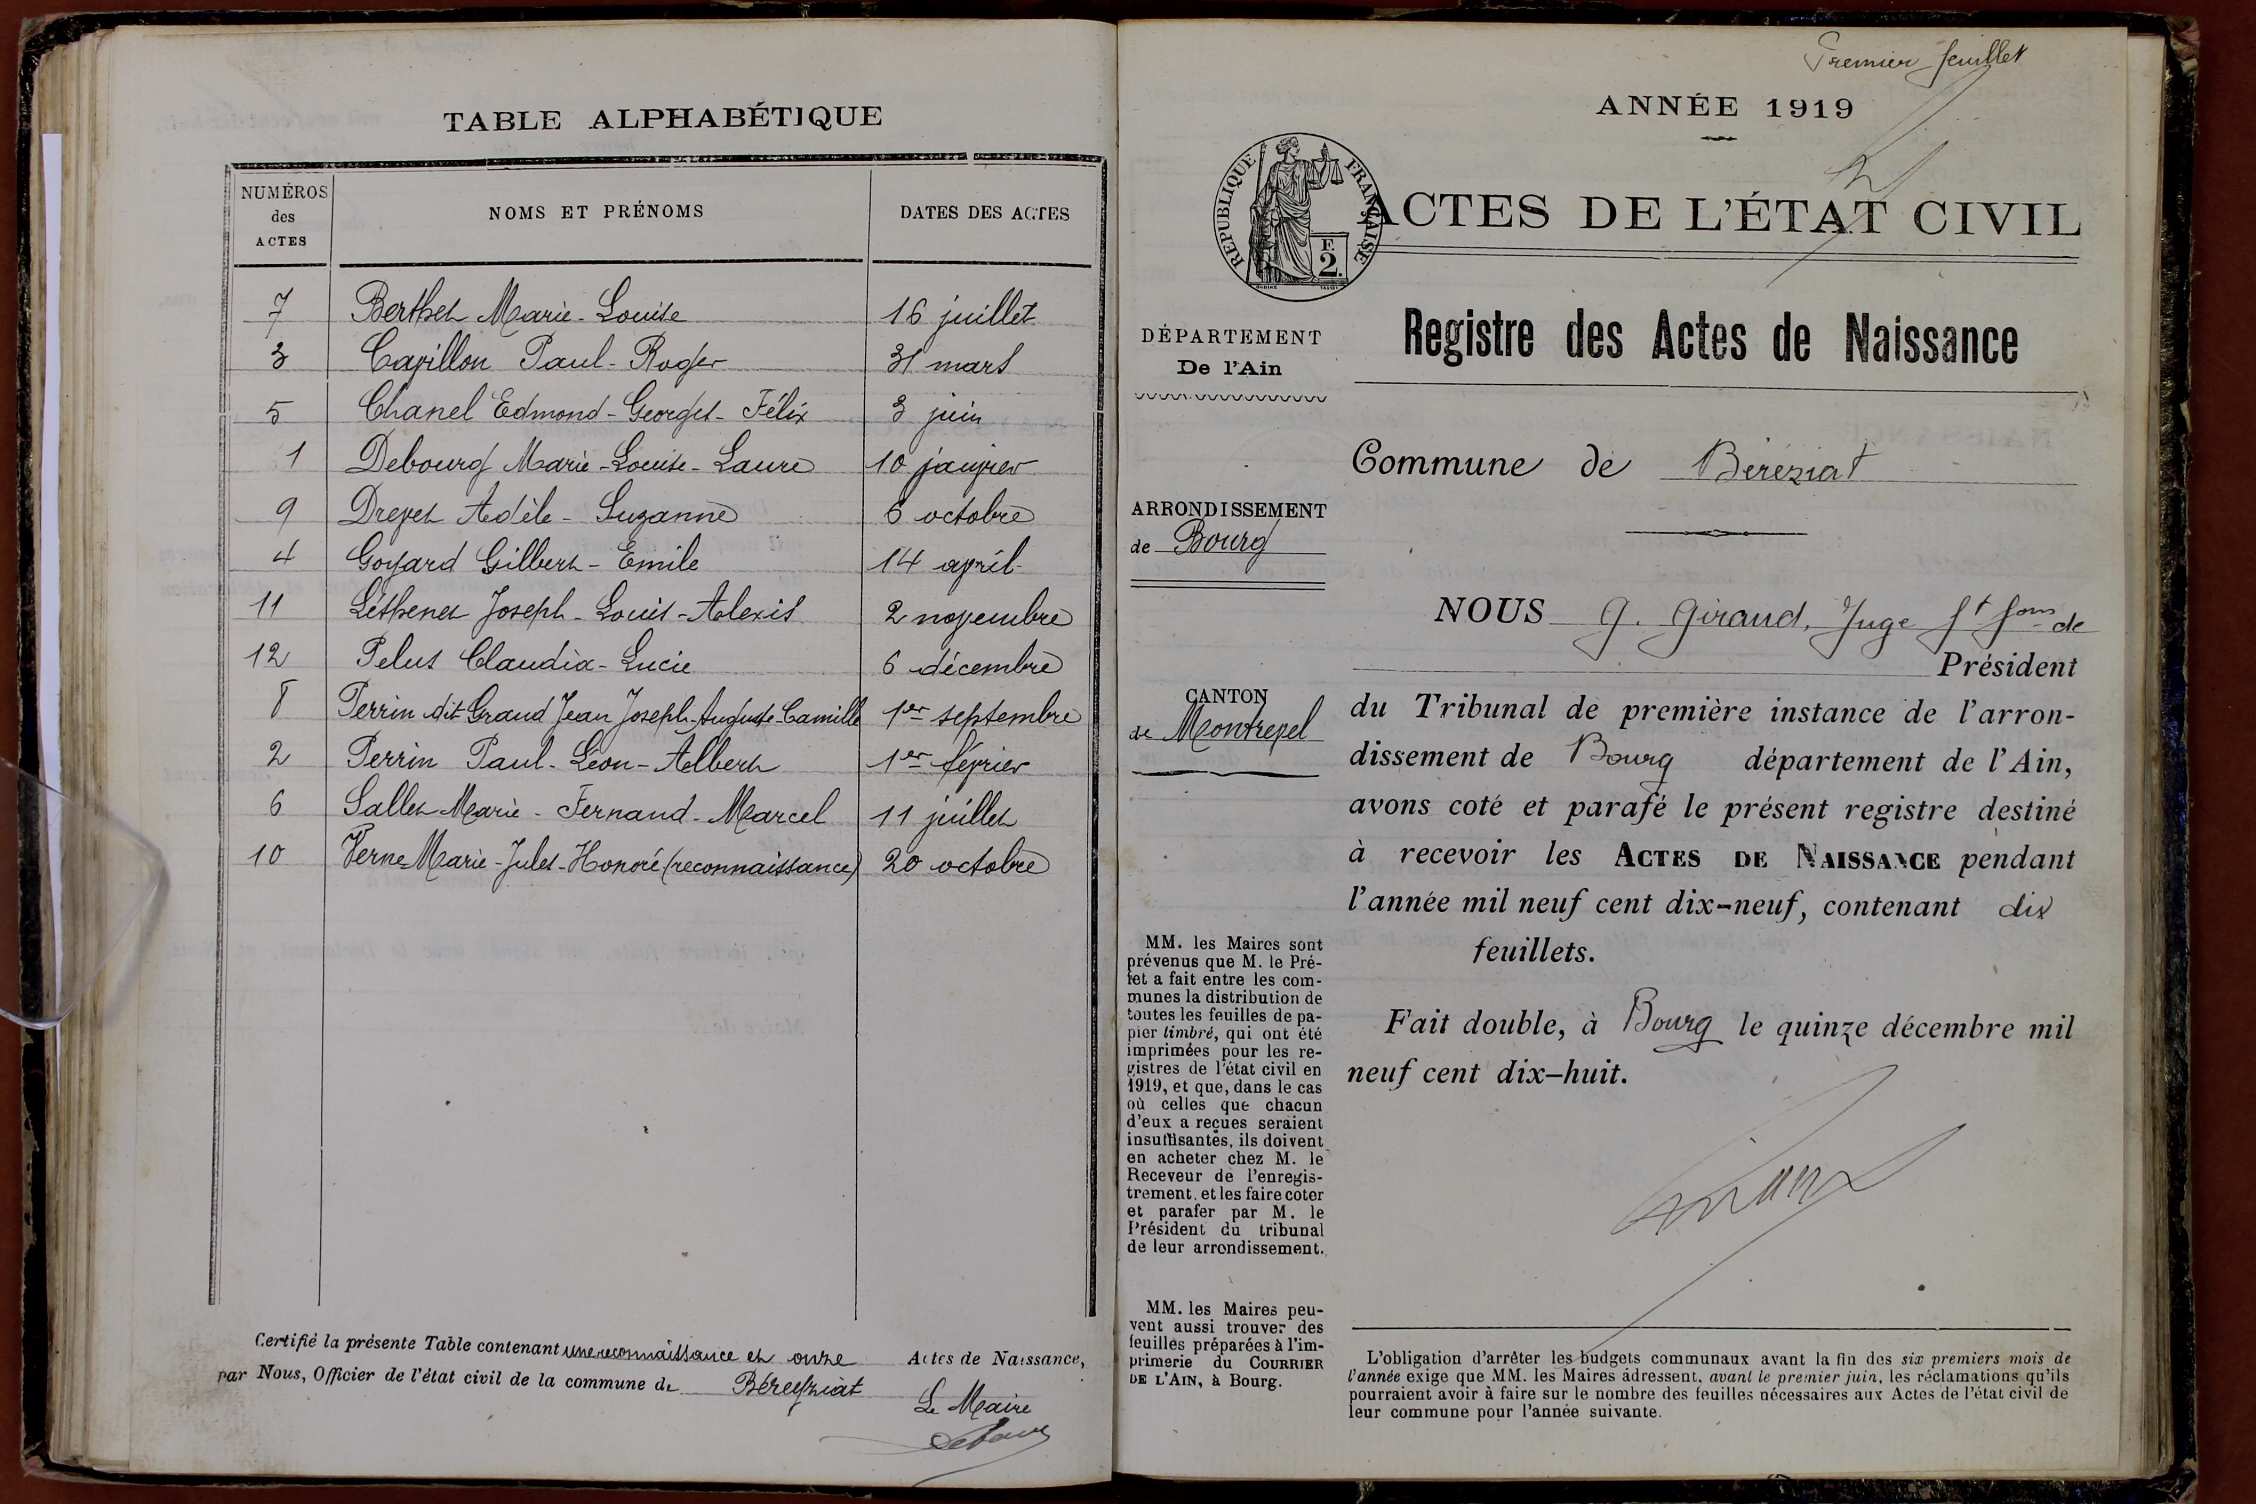 TABLE ALPHABÉTIQUE
NUMÉROS
des
ACTES
NOMS ET PRÉNOMS
DATES DES ACTES
7 Berthet Marie-Louise 16 juillet
3 Cavillon Paul-Roger 31 mars
5 Chanel Edmond-Georges-Félix 3 juin
1 Debourg Marie-Louise-Laure 10 janvier
9 Drevet Adèle-Suzanne 6 octobre
4 Goyard Gilbert-Emile 14 avril
11 Léthenet Joseph-Louis-Alexis 2 novembre
12 Pelus Claudia-Lucie 6 décembre
8 Perrin dit Grand Jean Joseph-Auguste-Camille 1er septembre
2 Perrin Paul-Léon-Albert 1er février
6 Sallet Marie-Fernand-Marcel 11 juillet
10 Verne Marie-Jules-Honoré (reconnaissance) 20 octobre
Certifié la présente Table contenant une reconnaissance et onze Actes de Naissance,
par Nous, Officier de l'état civil de la commune de Béreyziat
Le Maire
Premier feuillet
ANNÉE 1919
RÉPUBLIQUE FRANÇAISE
F.
2.
ACTES DE L'ÉTAT CIVIL
DÉPARTEMENT
De l'Ain
Registre des Actes de Naissance
Commune de Béréziat
ARRONDISSEMENT
de Bourg
NOUS G. Giraud, Juge de
Président
CANTON
de Montrevel
du Tribunal de première instance de l'arron-
dissement de Bourg département de l'Ain,
avons coté et parafé le présent registre destiné
à recevoir les ACTES DE NAISSANCE pendant
l'année mil neuf cent dix-neuf, contenant dix
feuillets.
Fait double, à Bourg le quinze décembre mil
neuf cent dix-huit.
MM. les Maires sont
prévenus que M. le Pré-
fet a fait entre les com-
munes la distribution de
toutes les feuilles de pa-
pier timbré, qui ont été
imprimées pour les re-
gistres de l'état civil en
1919, et que, dans le cas
où celles que chacun
d'eux a reçues seraient
insuffisantes, ils doivent
en acheter chez M. le
Receveur de l'enregis-
trement, et les faire coter
et parafer par M. le
Président du tribunal
de leur arrondissement.
MM. les Maires peu-
vent aussi trouver des
feuilles préparées à l'im-
primerie du COURRIER
DE L'AIN, à Bourg.
L'obligation d'arrêter les budgets communaux avant la fin des six premiers mois de
l'année exige que MM. les Maires adressent, avant le premier juin, les réclamations qu'ils
pourraient avoir à faire sur le nombre des feuilles nécessaires aux Actes de l'état civil de
leur commune pour l'année suivante.